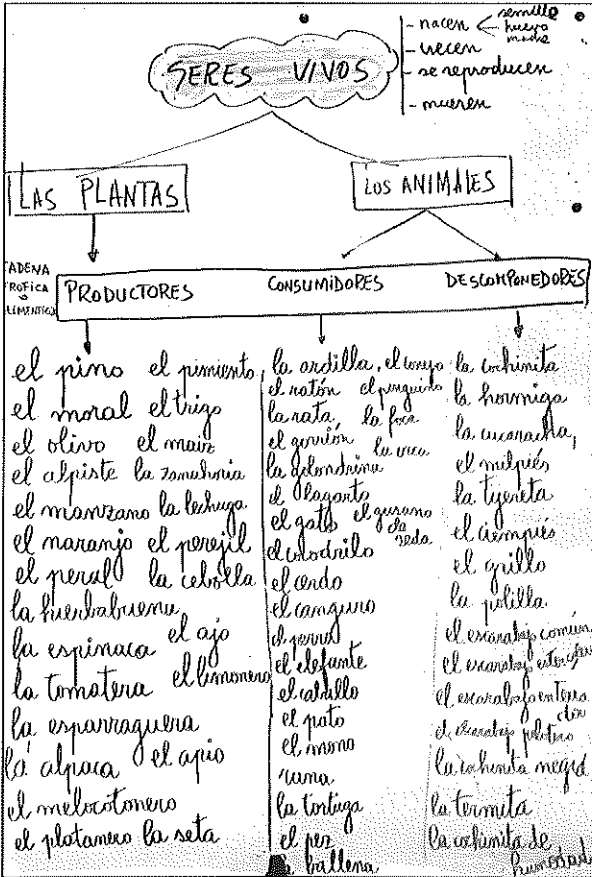 SERES VIVOS
- nacen
semilla
huevo
madre
- crecen
- se reproducen
- mueren
LAS PLANTAS
LOS ANIMALES
CADENA
TROFICA
ALIMENTICIA
PRODUCTORES
CONSUMIDORES
DESCOMPONEDORES
el pino el pimiento
el moral el trigo
el olivo el maiz
el alpiste la zanahoria
el manzano la lechuga
el naranjo el perejil
el peral la cebolla
la hierbabuena
la espinaca el ajo
la tomatera el limonero
la esparraguera
la alpaca el apio
el melocotonero
el platanero la seta
la ardilla, el conejo
el ratón el pinguino
la rata la foca
el gorrión la vaca
la golondrina
el lagarto
el gato el gusano de seda
el cocodrilo
el cerdo
el canguro
el perro
el elefante
el caballo
el pato
el mono
rana
la tortuga
el pez
la ballena
la cochinita
la hormiga
la cucaracha,
el milpiés
la tijereta
el ciempiés
el grillo
la polilla
el escarabajo común
el escarabajo
el escarabajo enterrador
el escarabajo pelotero
la cochinita negra
la termita
la cochinita de humedad